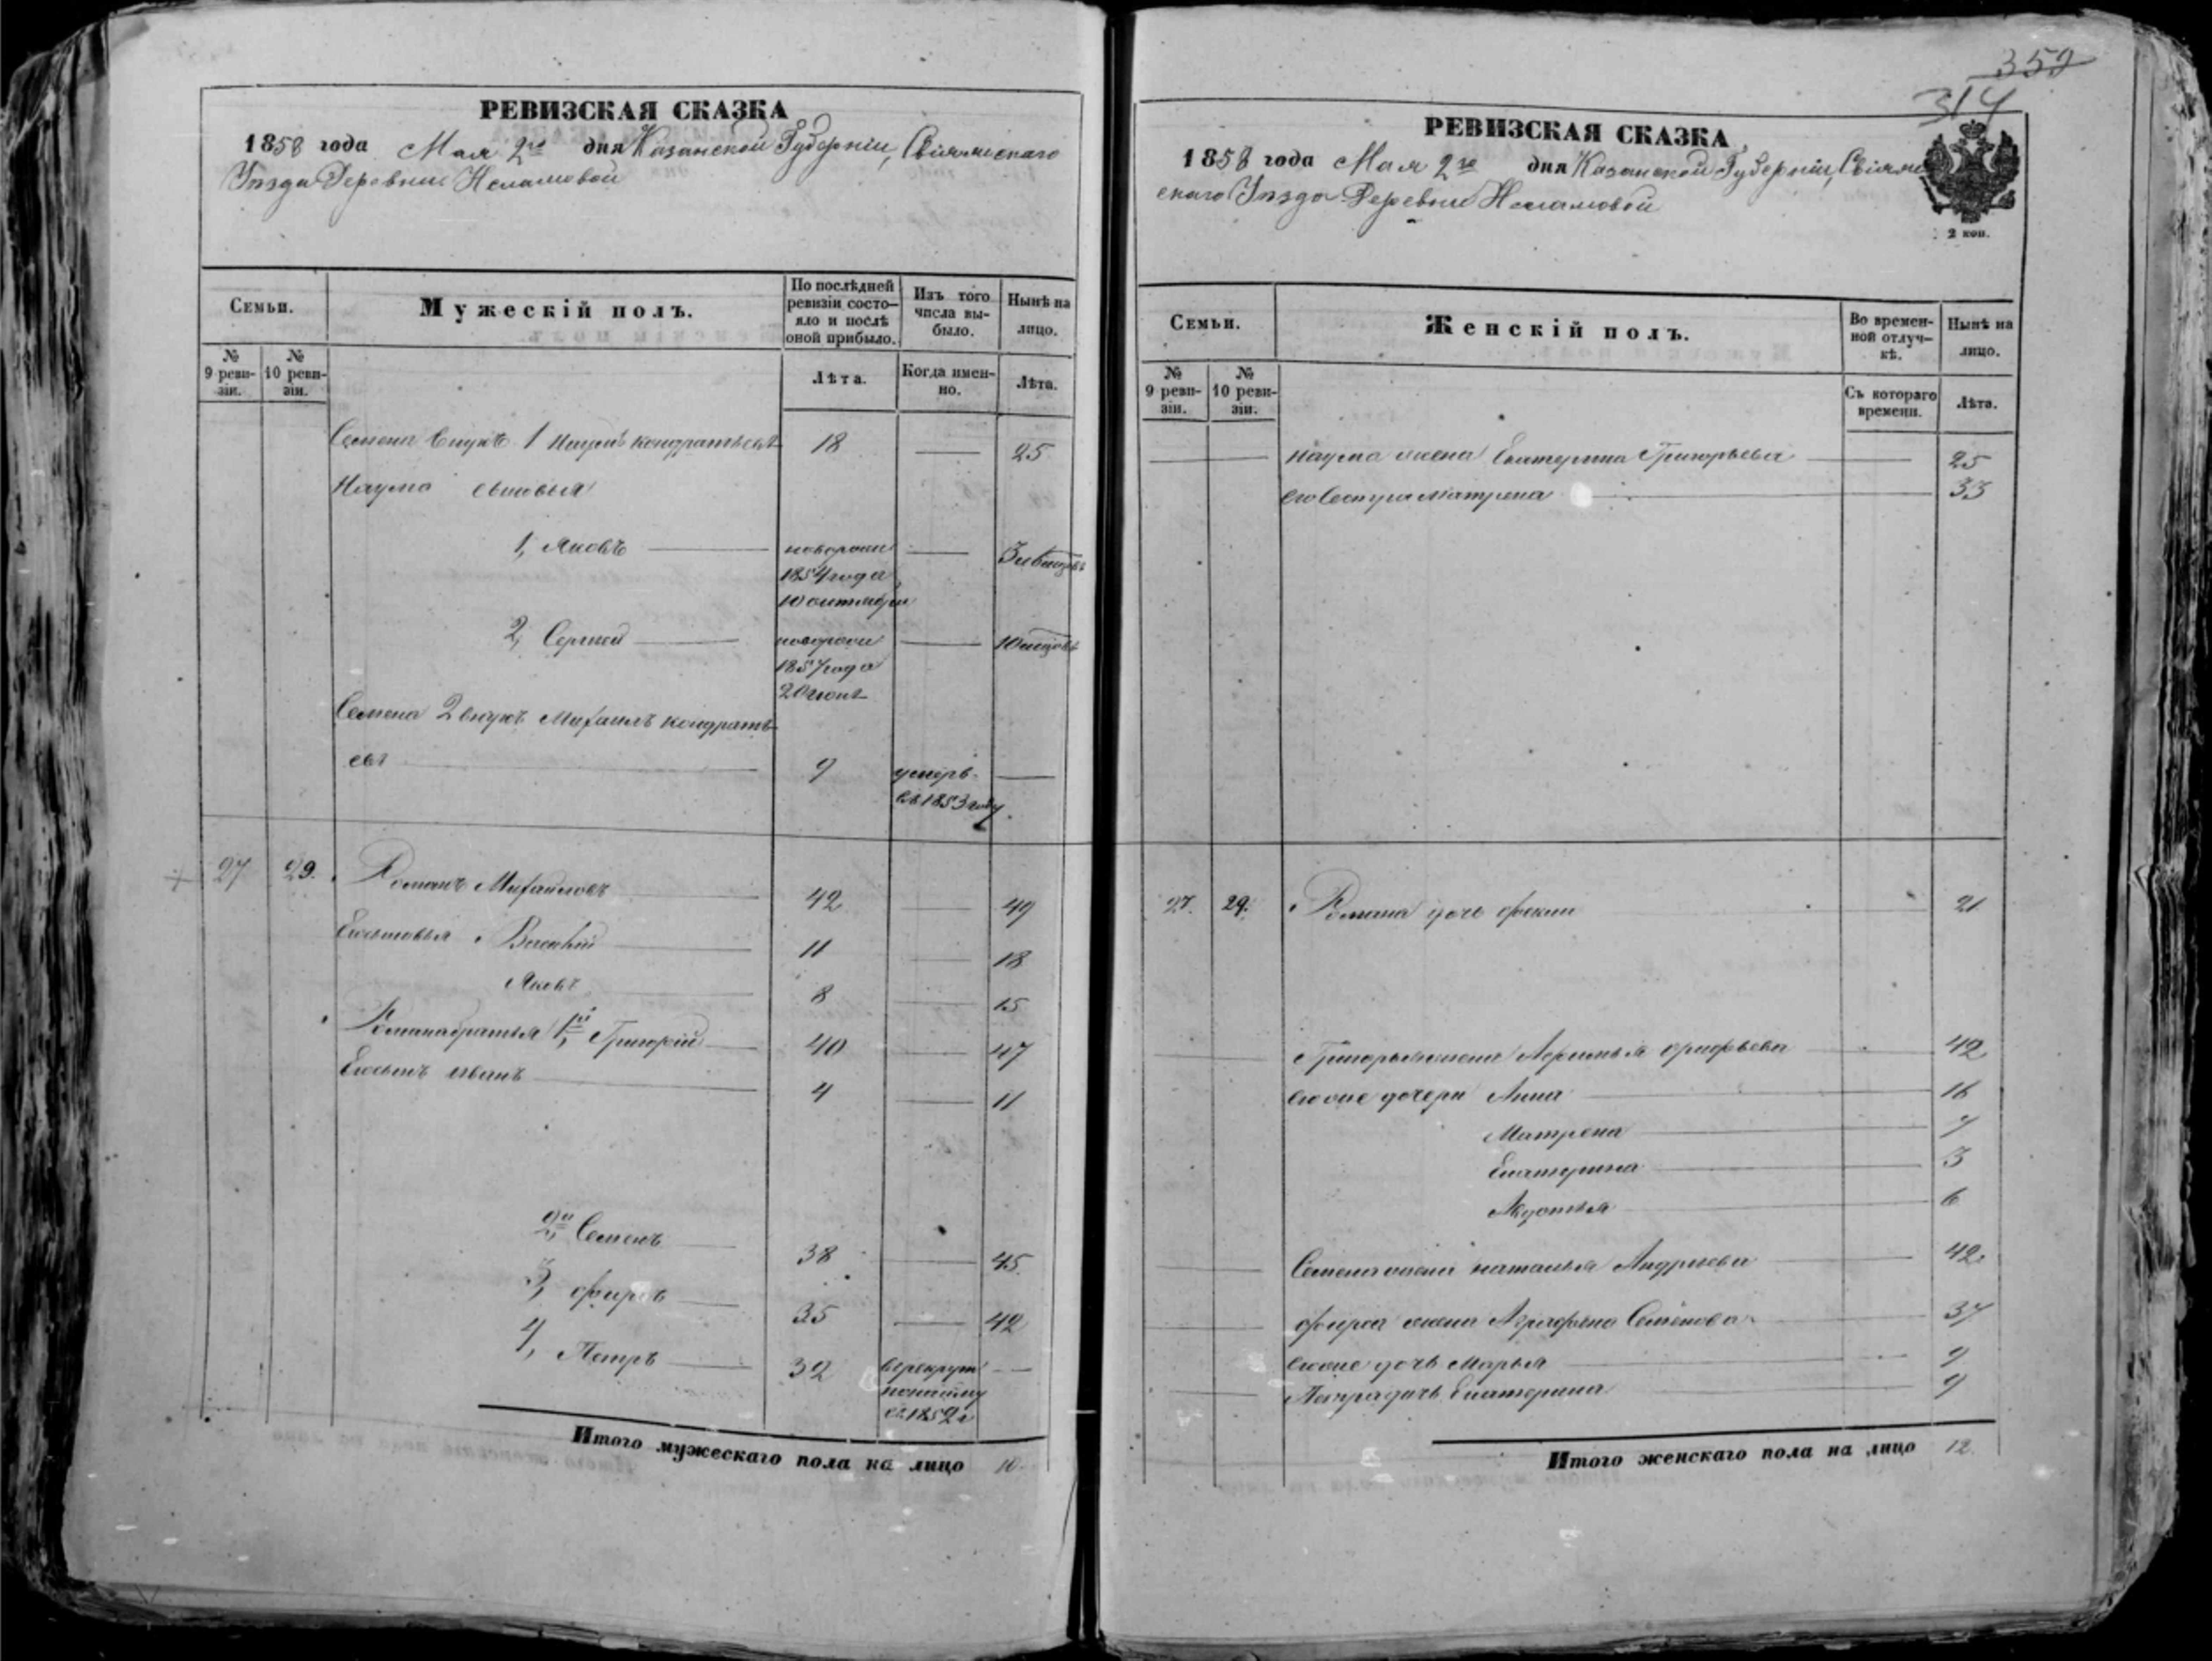 РЕВИЗСКАЯ СКАЗКА
1858 года Мая 2го дня Казанской Губерніи, Свіяжскаго
Уѣзда Деревни
Семьи.
Мужескій полъ.
По послѣдней ревизіи состояло и послѣ оной прибыло.
Изъ того числа выбыло.
Нынѣ на лицо.
№ 9 ревизіи.
№ 10 ревизіи.
Лѣта.
Когда именно.
Лѣта.
Семена внукъ 1 Наумъ Кондратьевъ 18 25
Наума сыновья
1, Яковъ новорожд 1854 года 10 октября 3
2, Сергей новорожд 1857 года 20 июня 10 месцовъ
Семена 2 внукъ Михаилъ Кондрать-
евъ 9 умеръ въ 1853 году
27 29. Романъ Михайловъ 42 49
Его сыновья Василій 11 18
Яковъ 8 15
Романа братья 1й, Григорій 40 47
Его сынъ Иванъ 4 11
2й, Семенъ 38 45.
3, Фирсъ 35 42
4, Петръ 32 в рекруты въ 1852 г
Итого мужескаго пола на лицо 10.
359
314
РЕВИЗСКАЯ СКАЗКА
1858 года Мая 2го дня Казанской Губерніи, Свіяж
скаго Уѣзда Деревни
2 коп.
Семьи.
Женскій полъ.
Во временной отлучкѣ.
Нынѣ на лицо.
№ 9 ревизіи.
№ 10 ревизіи.
Съ котораго времени.
Лѣта.
Наума жена Екатерина Григорьева 25
его сестра Матрена 33
27. 29. Романа дочь 21
Григорья жена 42
его дочери Анна 16
Матрена 7
Екатерина 3
Авдотья 6
Семена жена Наталья Андреева 42.
Фирса жена Аграфена Семенова 37
дочь Марья 9
Петра дочь Екатерина 9
Итого женскаго пола на лицо 12.